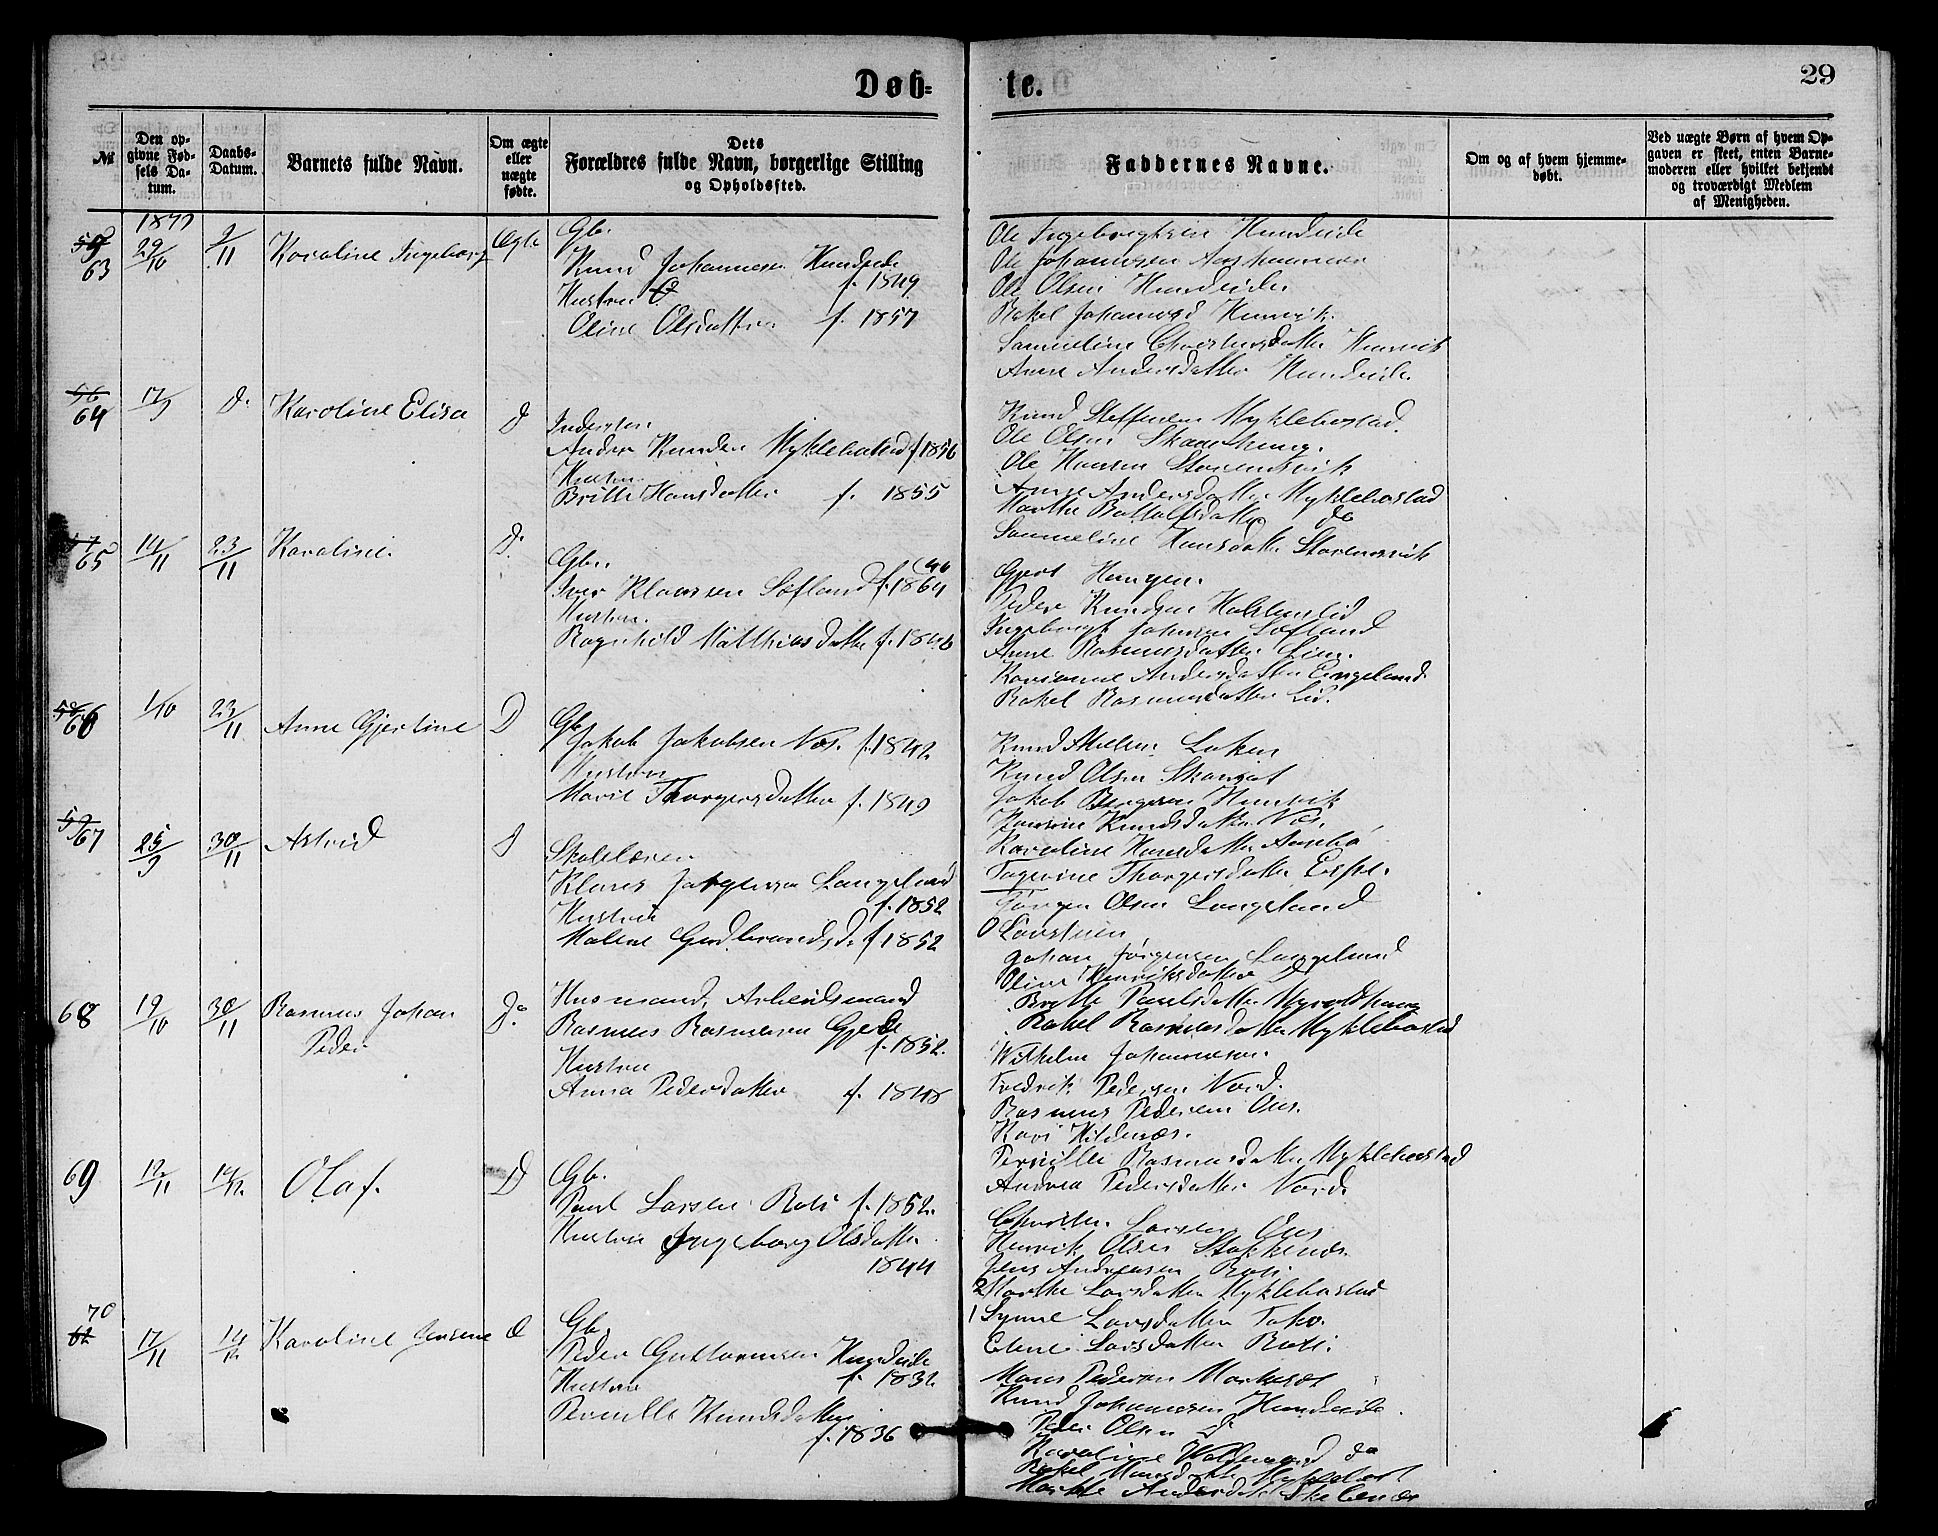 Døb-
te.
29
№
Den op-
givne Fød-
sels Da-
tum.
Daabs-
Datum.
Barnets fulde Navn.
Om ægte
eller
uægte
fødte.
Dets
Forældres fulde Navn, borgerlige Stilling
og Opholdssted.
Faddernes Navne.
Om og af hvem hjemme-
døbt.
Ved uægte Børn af hvem Op-
gaven er skeet, enten Barne-
moderen eller hvilket bekjendt
og troværdigt Medlem
af Menigheden.
1877
59
63
29/10
2/11
Karoline Ingeborg
Ægte
Gb.
Knud Johannesen Hundeide
f. 1849
Hustru
Oline Olsdatter f. 1857
Ole Ingebrigtsen Hundeide
Ole Johannesen
Ole Olsen Hundeide
Rakel Johannesd Henvik.
Samueline Christensdatter Henvik
Anne Andersdatter Hundeide.
56
64
17/9
D.
Karoline Elisa
D
Inderster
Anders Knudsen Myklebostad f. 1856
Hustru
Britte Hansdatter f. 1855
Knud Steffensen Myklebostad.
Ole Olsen
Ole Hansen Storensvik
Anne Andersdatter Myklebostad
Marthe Battolfsdatter do
Sammeline Hansdatter Storensvik
57
65
14/11
23/11
Karoline.
D.
Gbr.
46
Iver Klaussen Sætland f. 1864
Hustru.
Ragnhild Matthiasdatter f. 1846
Gjert Haugen.
Peder Knudsen
Ingebrigt Johnsen Sætland
Anne Rasmusdatter Lien.
Karianne Andersdatter Engeland
Rakel Rasmusdatter Lid.
58
66
1/10
23/11
Anne Gjertine
D
Gb.
Jakob Jakobsen Næs. f. 1842
Hustru
Marie Thorgersdatter f. 1849
Knud Løken
Knud Olsen
Jakob Henvik
Knudsdatter Næs.
Karoline Hansdatter
Thorgersdatter Eespe.
59
67
25/9
30/11
Astrid
D
Skolelærer
Klaus Jørgensen Langeland
f. 1852
Hustru
Malene Gudbrandsd. f 1852
Jørgen Olsen Langeland
O Løvstuen
Johan Jørgensen Langeland
Oline Henriksdatter D
Britte Paulsdatter
Rakel Rasmusdatter Myklebostad
68
19/10
30/11
Rasmus Johan
Peder
Do
Husmand, Arbeidsmand
Rasmus Rasmusen
f. 1852.
Hustru
Anna Pedersdatter f. 1848
Wilhelm Johannesen.
Fredrik Pedersen Nord.
Rasmus Pedersen Øus.
Kari Hildenæs.
Pernille Rasmusdatter Myklebostad
Andrea Pedersdatter Nord
69
12/11
14/12.
Olaf.
D
Gb.
Paul Larsen Roti f. 1852.
Hustru Ingeborg Olsdatter
1844
Christen Larsen Øus
Henrik Olsen Stokkenæs
Jens Andreasen Roti
2 Marthe Larsdatter Myklebostad
1 Synne Larsdatter
Eline Larsdatter Roti.
70
62
17/11
14/12
Karoline Jensine
D
Gb.
Peder Guttormsen Hundeide
f. 1832
Hustru
Pernille Knudsdatter
f. 1836
Mons Pedersen
Knud Johannesen Hundeide
Peder Olsen D
Karoline Woldemarsd do
Rakel Monsdatter Myklebost
Marthe Andersdatter Stokkenæs